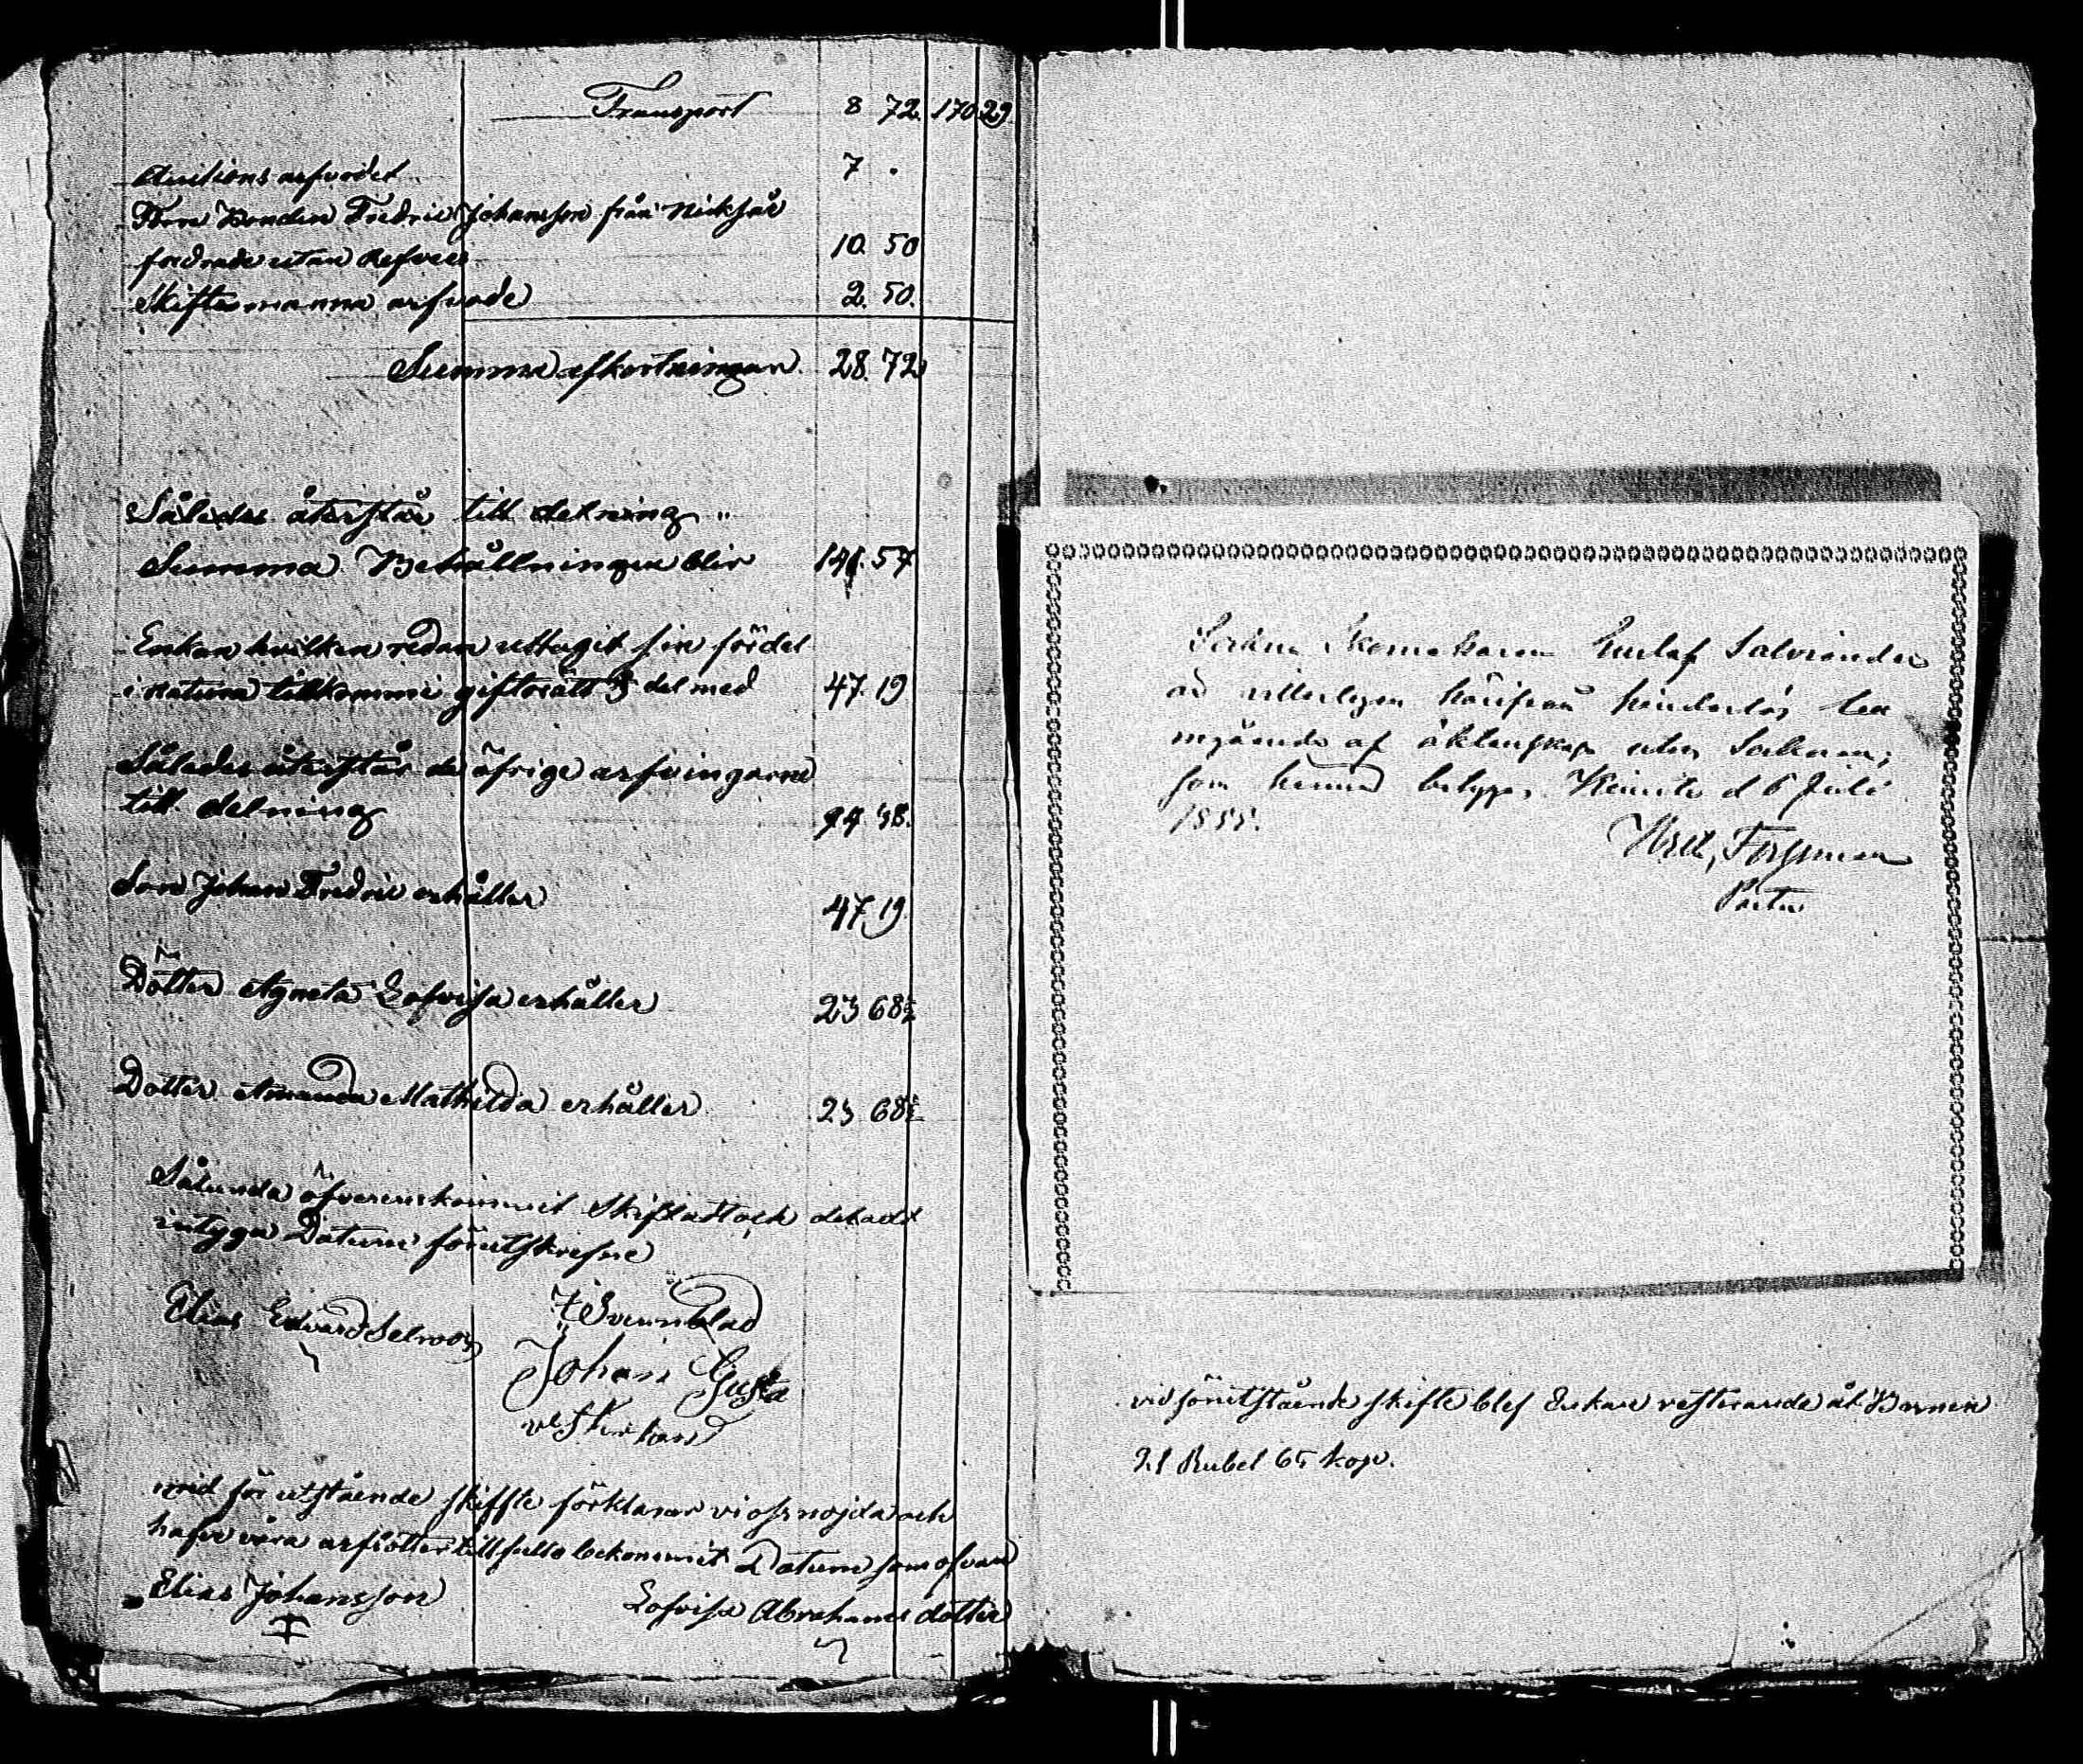 Transport 8 72. 170 29
Auctions arfvodet 7 .
Förre Bonden Fredric Johansson från Nicksår
fordrade utan Refvers 10. 50
Skiftesmanna arfvode 2. 50.
Summa afkortningar 28. 72
Således återstår till delning "
Summa Behållningen blir 141. 57
Enkan hvilken redan uttagit sin fördel
i natura tillkommer giftorätt ⅓ del med 47. 19
Således återstår de öfrige arfvingarne
till delning 94 38.
Son Johan Fredric erhåller 47 19.
Dotter Agneta Lofvisa erhåller 23 68½
Dotter Amanda Mathilda erhåller 23 68½
Sålunda öfverenskommit Skiftat och deladt
intyga Datum förutskrefne
Elias Edvard Selroos
Johan Gusta
med för utstående skiffte förklarar vi oss nöjda och
hafva våra arfslotter till fullo bekommit Datum som ofvan
Elias Johansson Lofvisa Abrahams dotter
Skomakaren Gustaf
är vitterligen härifrån hinderlös
ingående af äktenskap uti
som härmed betygas Kimito d 6 Juli
1855.
Pastor
vid förutstående skifte blef Enkan resterande åt Barnen
21 Rubel 65 kop.